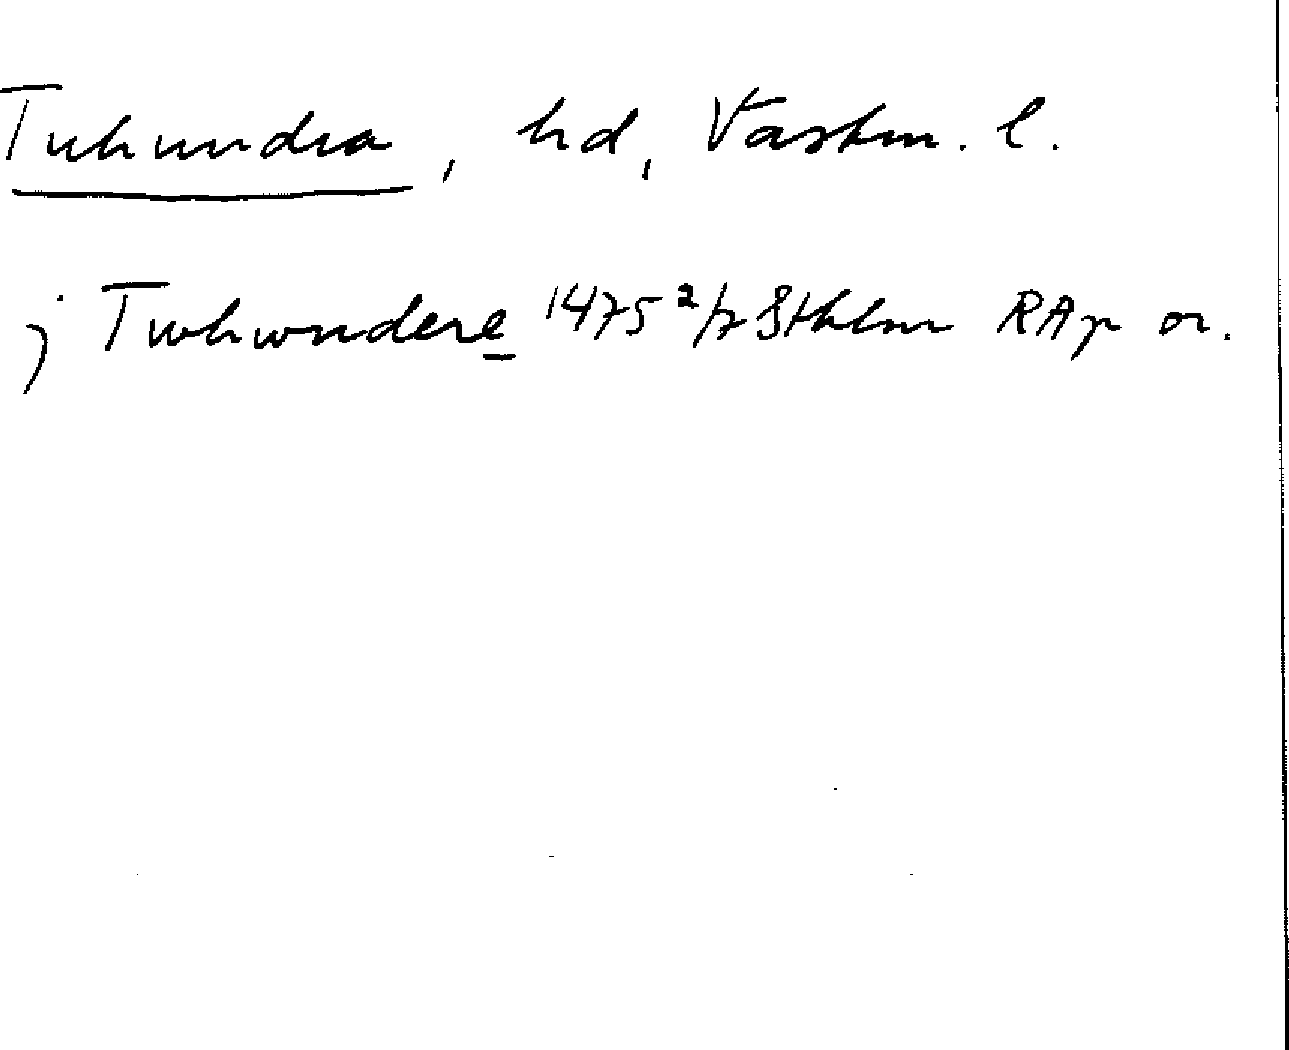 Tuhundra, hd, Västm. l.
j Twhwndere 1475 2/7 Sthlm RAp or.